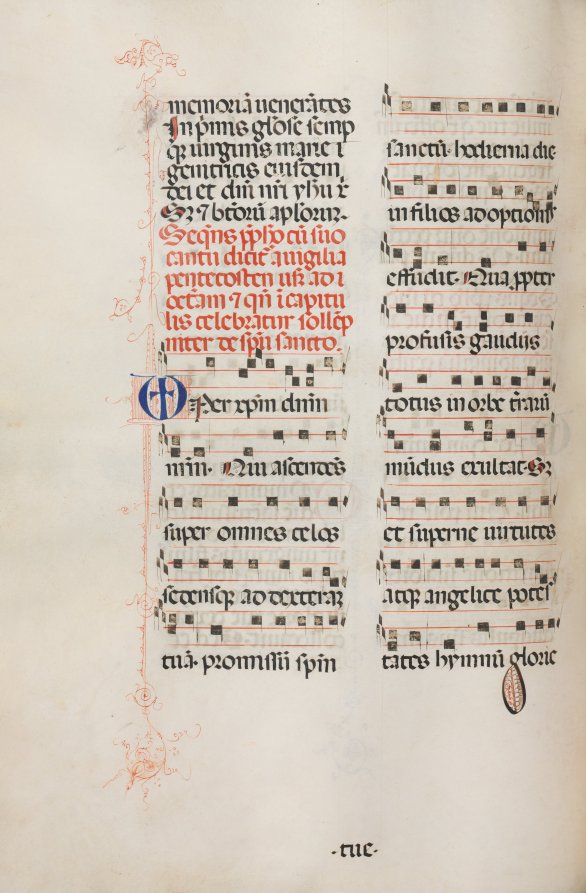 memoriā venerātes
In pͥmis glōse semp
qꝫ virginis marie ⁊
genitricis eiusdem
dei et dñi nr̄i yhū x̄
Sꝫ ⁊ btōrū apl̄orum.
Seqͥns p̄pħo cū suo
cantu dicit̄ a vigilia
pentecosten usqꝫ ad i
oct̄am ⁊ qn̄ ī capitu
lis celebratur sollēp
niter de spū sancto.
Per xp̄m dn̄m
nr̄m. Qui ascendēs
super omnes celos
sedensqꝫ ad dexterā
tuā. promissū spm
sanctū. hodierna die
in filios adoptionis
effudit. Qua ꝓpter
profusis gaudiis
totus in orbe tr̄arū
mūdus exultat. Sꝫ
et superne virtutes
atqꝫ angelice potes
tates hymnū glorie
·tue·